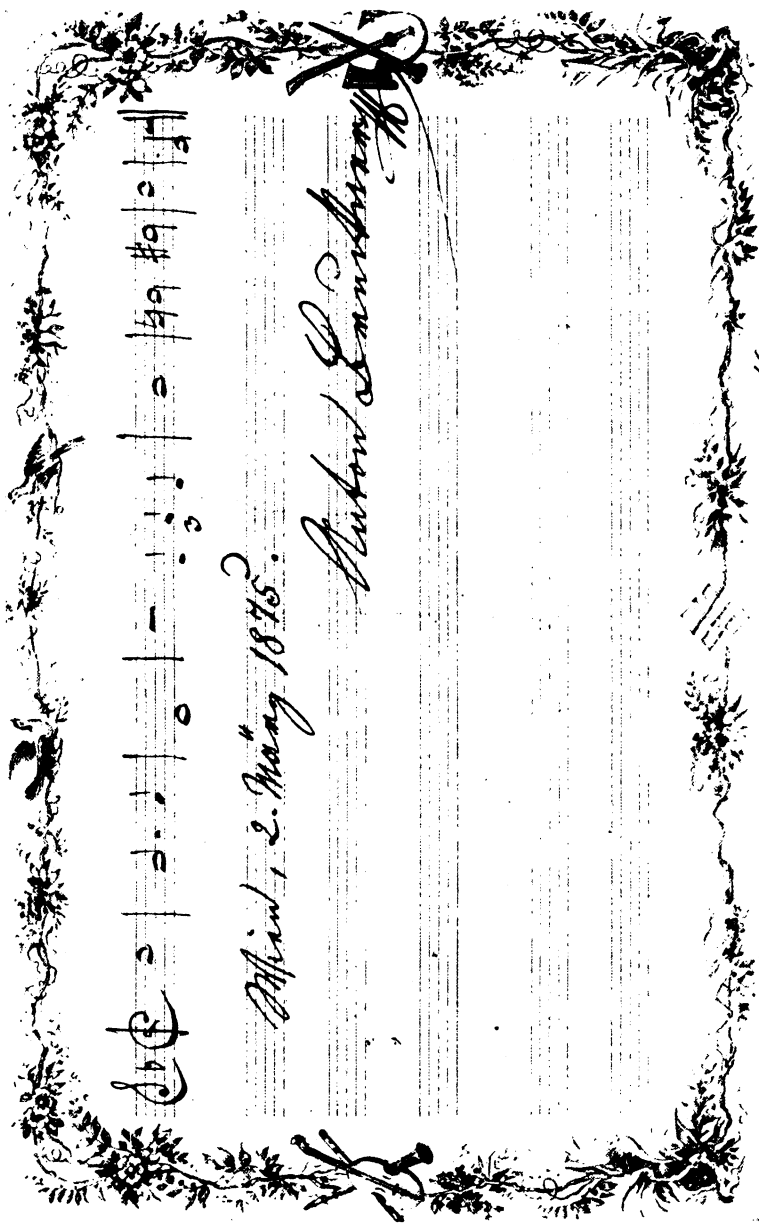 Wien, 2. März 1875.
Anton Bruckner